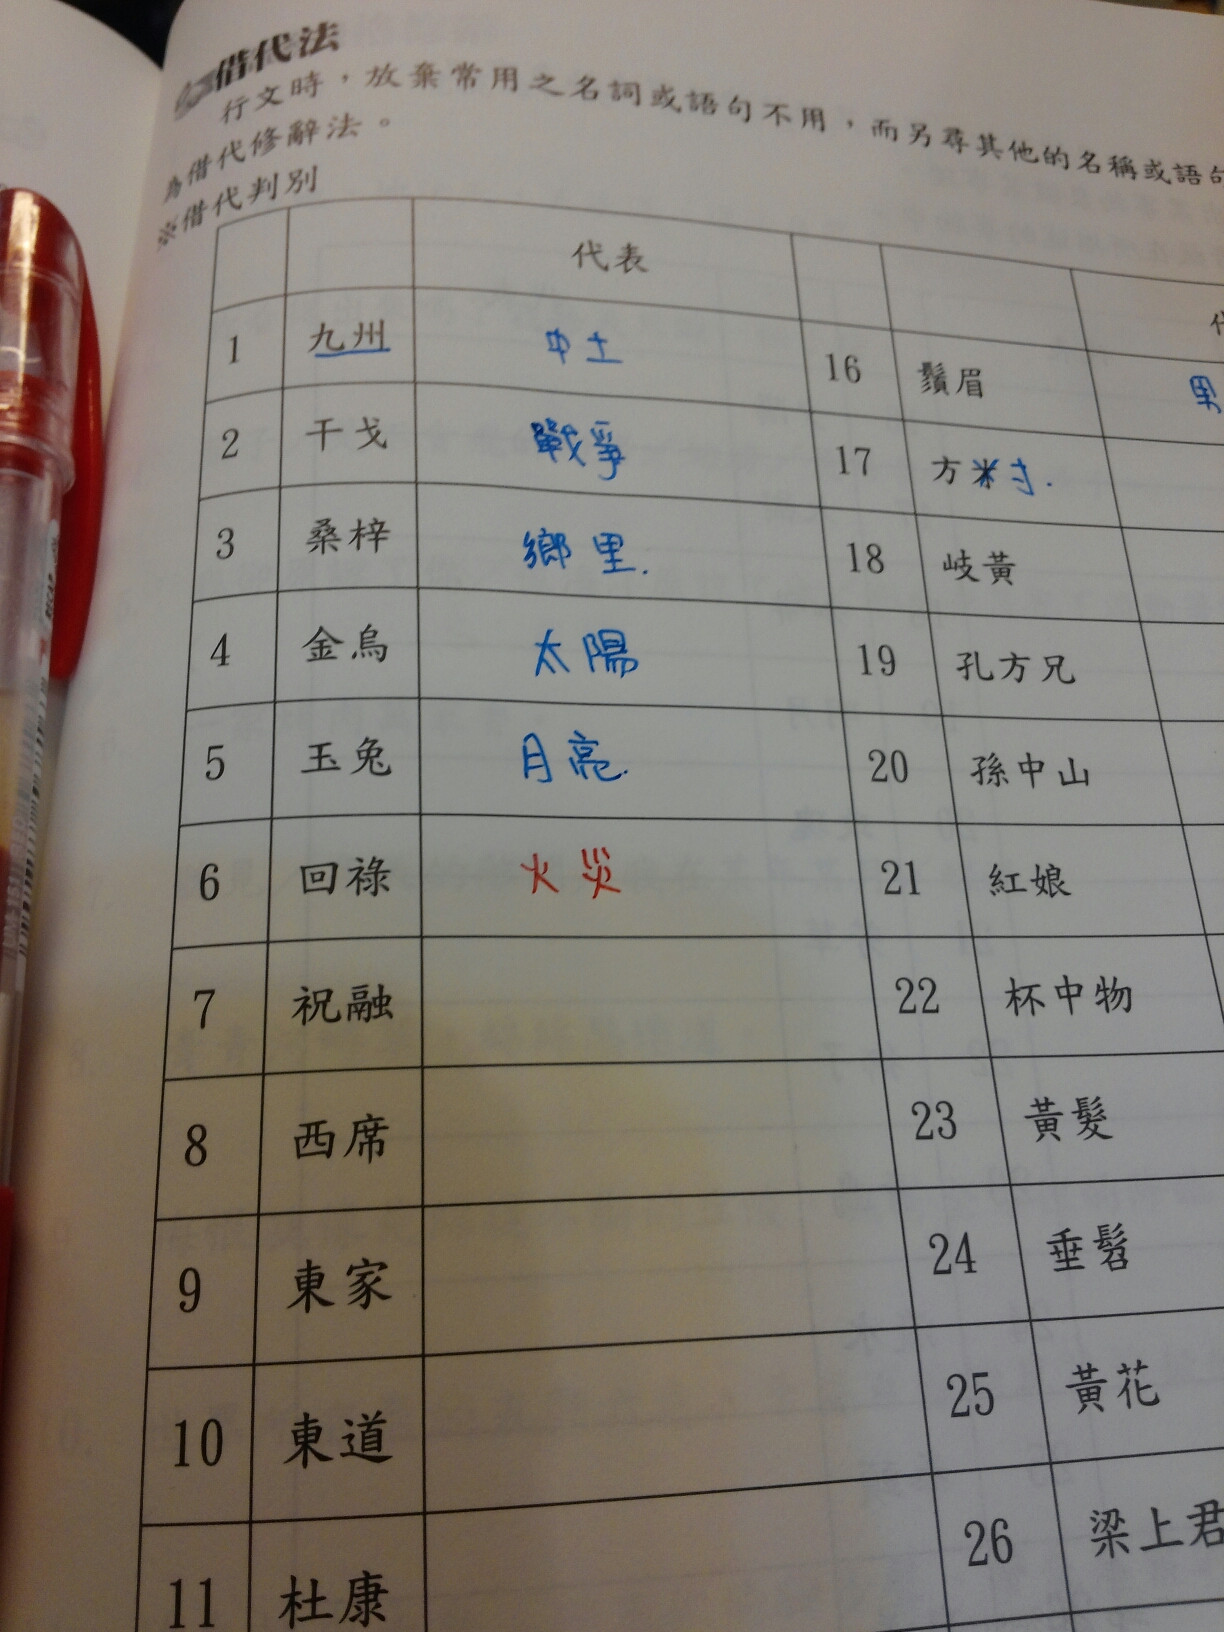 借代法
行文時，放棄常用之名詞或語句不用，而另尋其他的名稱或語句
為借代修辭法。
※借代判別
代表
1 九州 中土 16 鬚眉 男
2 干戈 戰爭 17 方寸.
3 桑梓 鄉里. 18 岐黃
4 金烏 太陽 19 孔方兄
5 玉兔 月亮. 20 孫中山
6 回祿 火災 21 紅娘
7 祝融 22 杯中物
8 西席 23 黃髮
9 東家 24 垂髫
10 東道 25 黃花
11 杜康 26 梁上君